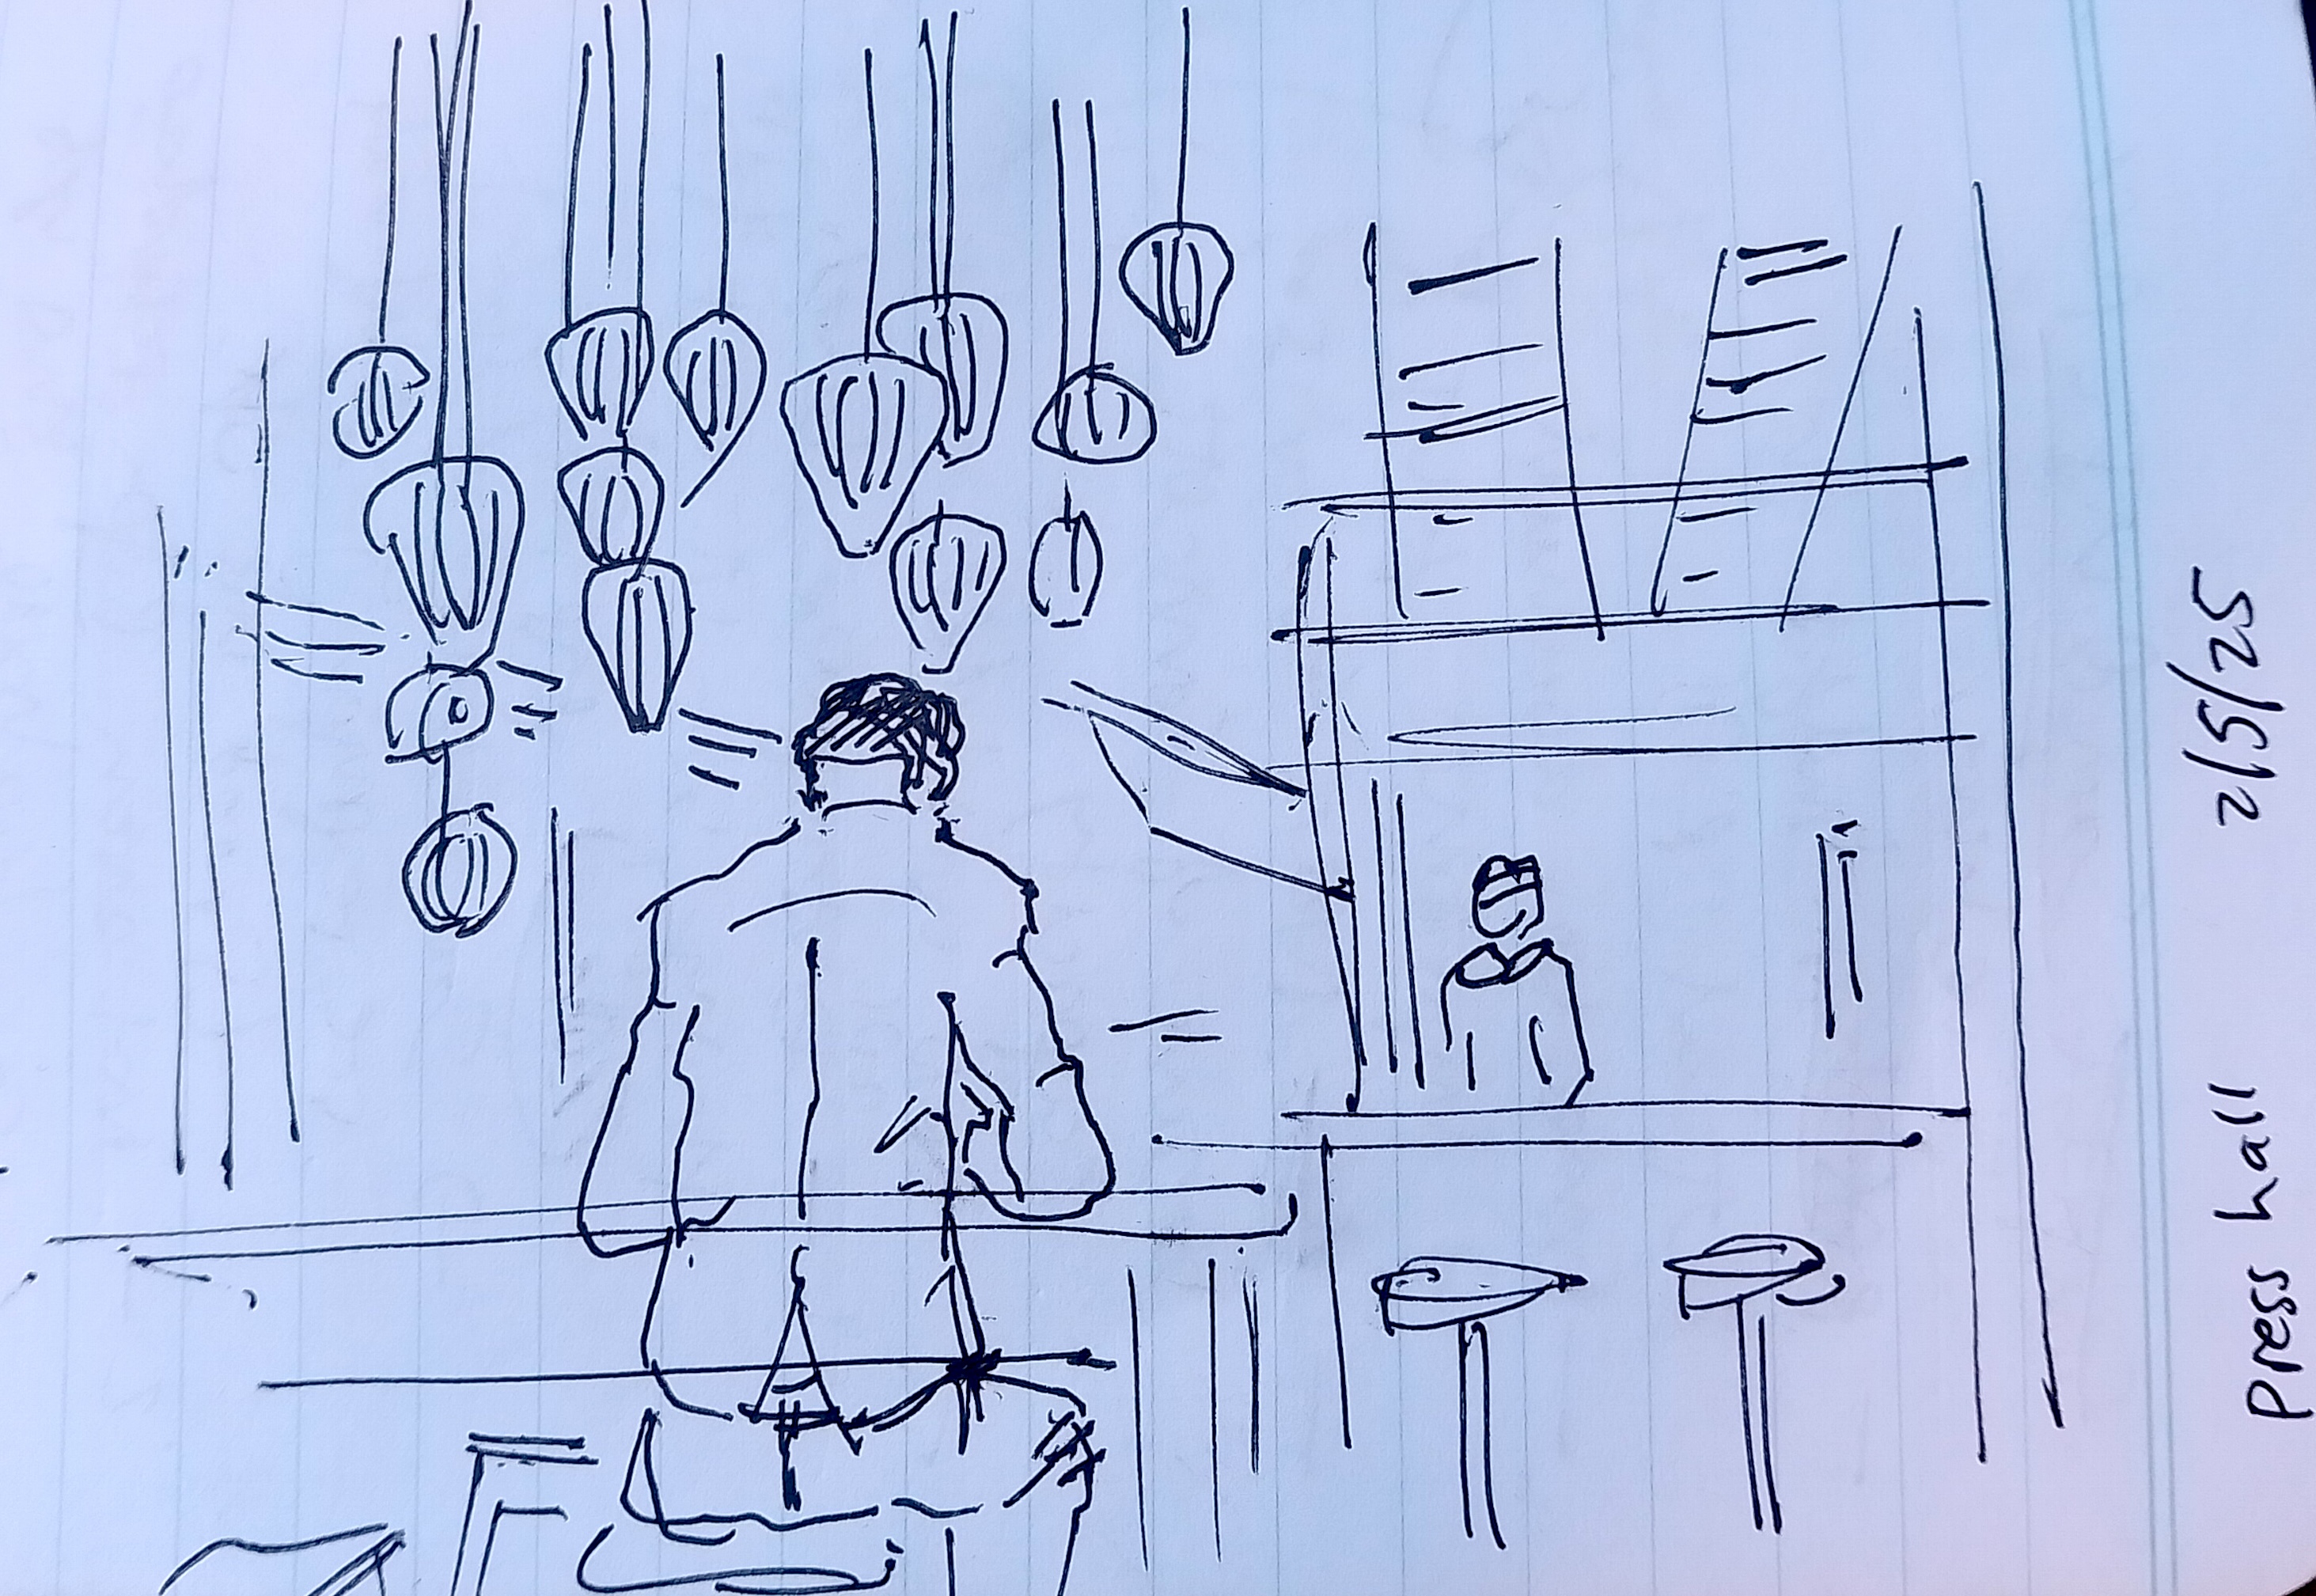 Press hall 2/5/25